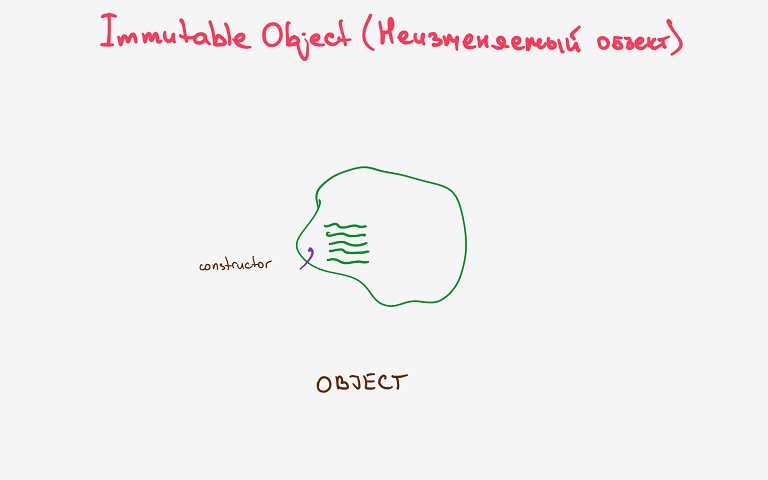 Immutable Object (Неизменяемый объект)
constructor
OBJECT